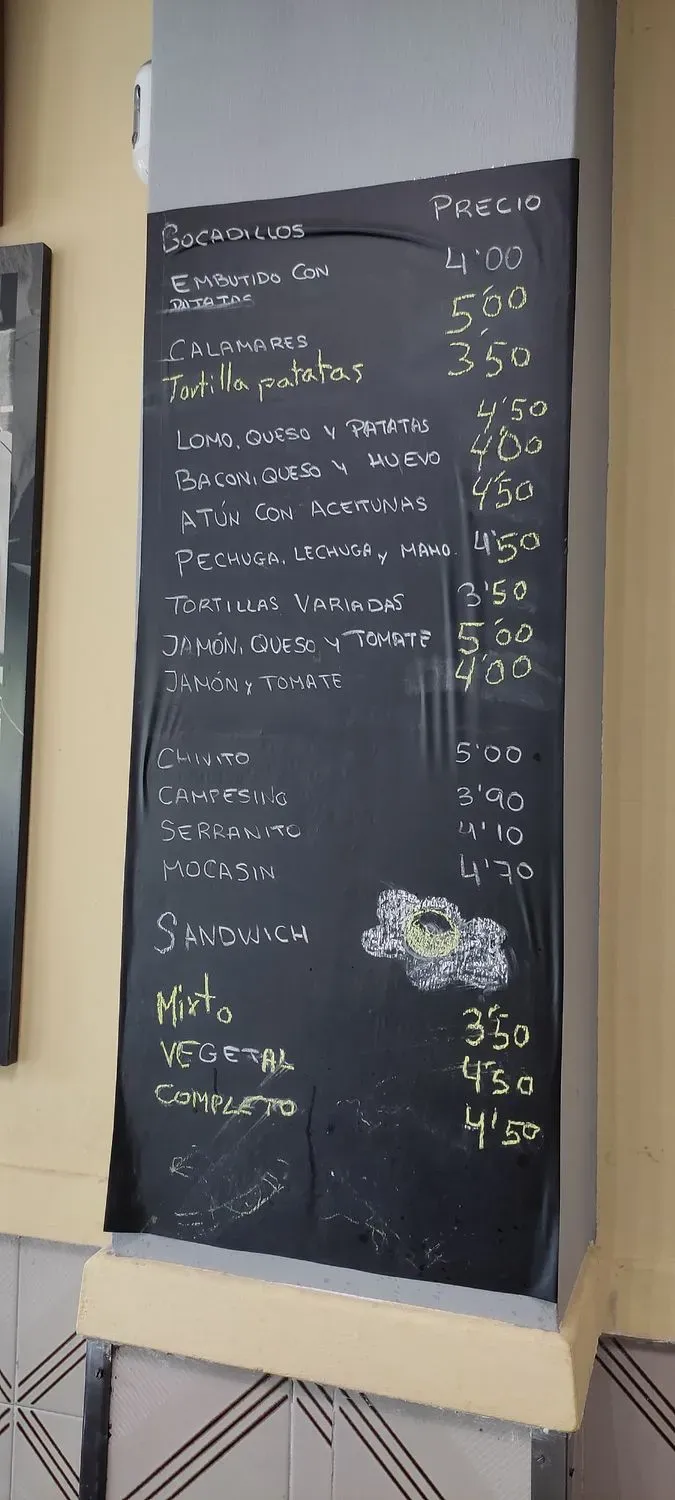 BOCADILLOS PRECIO
EMBUTIDO CON 4'00
PATATAS
5'00
CALAMARES
Tortilla patatas 3'50
LOMO, QUESO Y PATATAS 4'50
BACON, QUESO Y HUEVO 4'00
ATÚN CON ACEITUNAS 4'50
PECHUGA, LECHUGA y MAHO. 4'50
TORTILLAS VARIADAS 3'50
JAMÓN, QUESO Y TOMATE 5'00
JAMÓN y TOMATE 4'00
CHIVITO 5'00
CAMPESINO 3'90
SERRANITO 4'10
MOCASIN 4'70
SANDWICH
Mixto 3'50
VEGETAL 4'50
COMPLETO 4'50